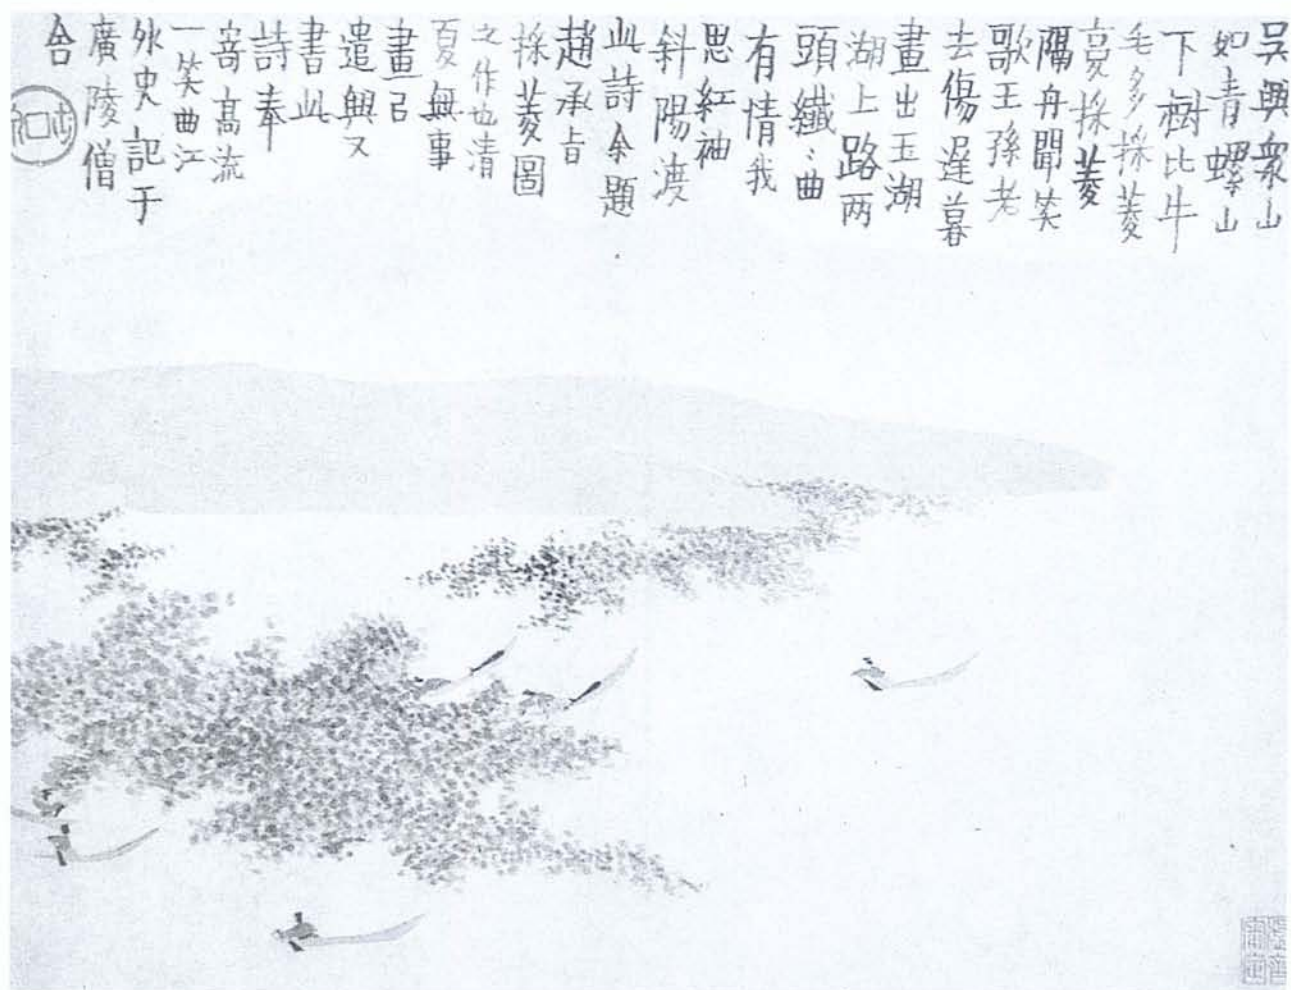 吳興衆山
如青螺山
下樹比牛
毛多採菱
复採菱
隔舟聞笑
歌王孫老
去傷遲暮
畫出玉湖
湖上路两
頭纖〻曲
有情我
思紅袖
斜陽渡
此詩余題
趙承旨
採菱圖
之作也清
夏無事
畫已
遣興又
書此
詩奉
寄髙流
一笑曲江
外史記于
廣陵僧
舍